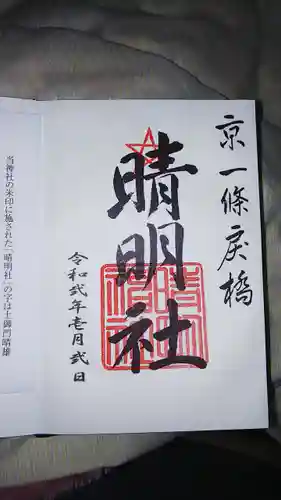 京一條戻橋
晴明社
令和弐年壱月弐日
当神社の朱印に施された「晴明社」の字は土御門晴雄